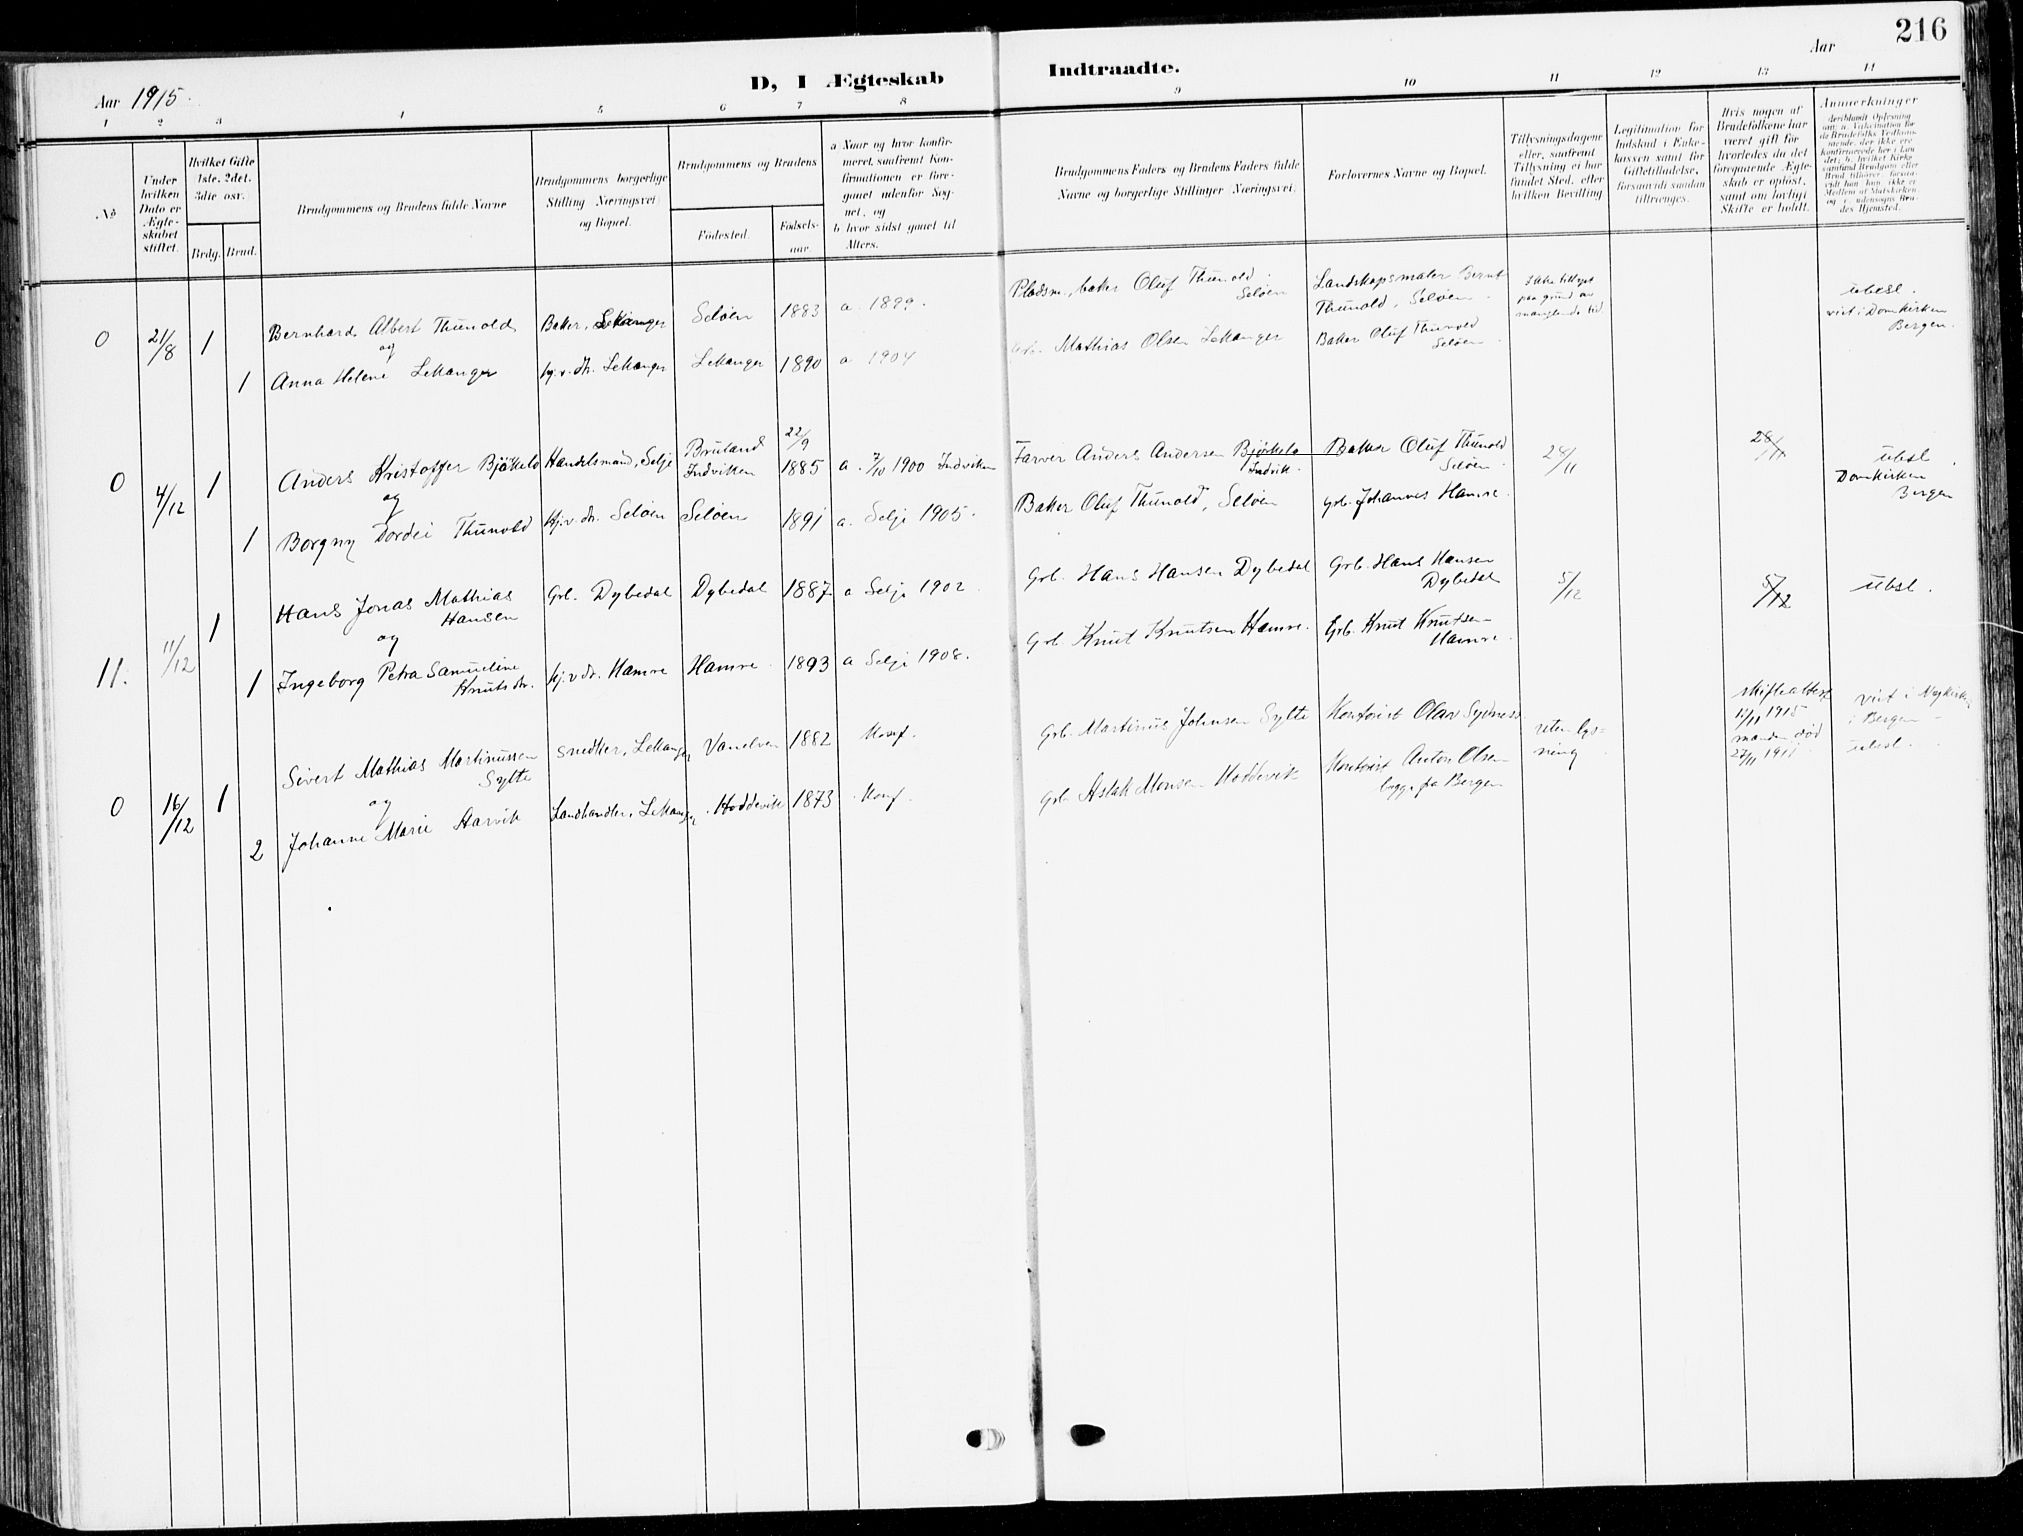 216
Aar 1915.
D, I Ægteskab Indtraadte.
Aar
1 2 3 4 5 6 7 8 9 10 11 12 13 14
No
Under hvilken Dato er Ægteskabet stiftet.
Hvilket Gifte 1ste, 2det, 3die osv.
Brdg. Brud.
Brudgommens og Brudens fulde Navne
Brudgommens borgerlige Stilling Næringsvei og Bopæl.
Brudgommens og Brudens
Fødested. Fødselsaar.
a Naar og hvor konfirmeret, saafremt Konfirmationen er foregaaet udenfor Sognet, og
b hvor sidst gaaet til Alters.
Brudgommens Faders og Brudens Faders fulde Navne og borgerlige Stillinger Næringsvei.
Forlovernes Navne og Bopæl.
Tillysningsdagene eller, saafremt Tillysning ei har fundet Sted, efter hvilken Bevilling
Legitimation for Indskud i Enkekassen samt for Giftetilladelse, forsaavidt saadan tiltrænges.
Hvis nogen af Brudefolkene har været gift før hvorledes da det foregaaende Ægteskab er opløst, samt om lovligt Skifte er holdt.
Anmerkninger
0 21/8 1 Bernhard Albert Thunold Baker, Lekanger Seløen 1883 a 1899. Pladsm., baker Oluf Thunold Seløen Landskapsmaler Bernt Thunold, Seløen. Ikke tillyst paa grund av manglende tid. ubesl.
og
viet i Domkirken Bergen.
1 Anna Helene Lekanger hj.v. dtr. Lekanger Lekanger 1890 a 1904 Mathias Olsen Lekanger Baker Oluf Thunold Seløen.
0 4/12 1 Anders Kristoffer Bjökelo Handelsmand, Selje Bruland Indviken 22/9 1885 a. 7/10 1900 Indviken Farver Anders Andersen Bjørkelo Indvik. Baker Oluf Thunold Seløen. 28/11 28/11 ubesl.
og
Domkirken Bergen
1 Borgny Dordei Thunold hj.v. dtr. Seløen Seløen 1891 a. Selje 1905. Baker Oluf Thunold, Seløen Grb. Johannes Hamre.
11. 11/12 1 Hans Jonas Mathias Hansen Grb. Dybedal Dybedal 1887 a Selje 1902. Grb. Hans Hansen Dybedal Grb. Hans Hansen Dybedal 5/12 5/12 ubesl.
og
1 Ingeborg Petra Samueline Knutsdtr. hj.v dtr. Hamre Hamre. 1893 a Selje 1908. Grb Knut Knutsen Hamre. Grb. Knut Knutsen Hamre.
0 16/12 1 Sivert Mathias Martinussen Sylte snedker, Lekanger Vanelven 1882 Konf. Grb. Martinus Johnsen Sylte Kontorist Olav Sydness uten lysning skifteattest 11/11 1915 manden død 27/11 1911 viet i Nykirken i Bergen
og
ubesl.
2 Johanne Marie Aarvik Landhandler, Lekanger. Hoddevik 1873 Konf. Grb Aslak Monsen Hoddevik Kontorist Anton Olsen begge fra Bergen